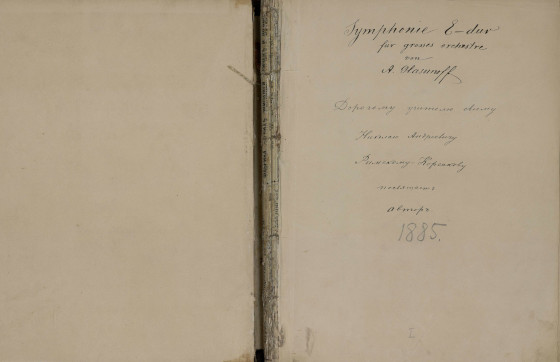 Symphonie E-dur
für grosses orchestre
von
A. Glazunoff
Дорогому учителю своему
Николаю Андреевичу
Римскому-Корсакову
посвящаетъ
авторъ
1885.
I